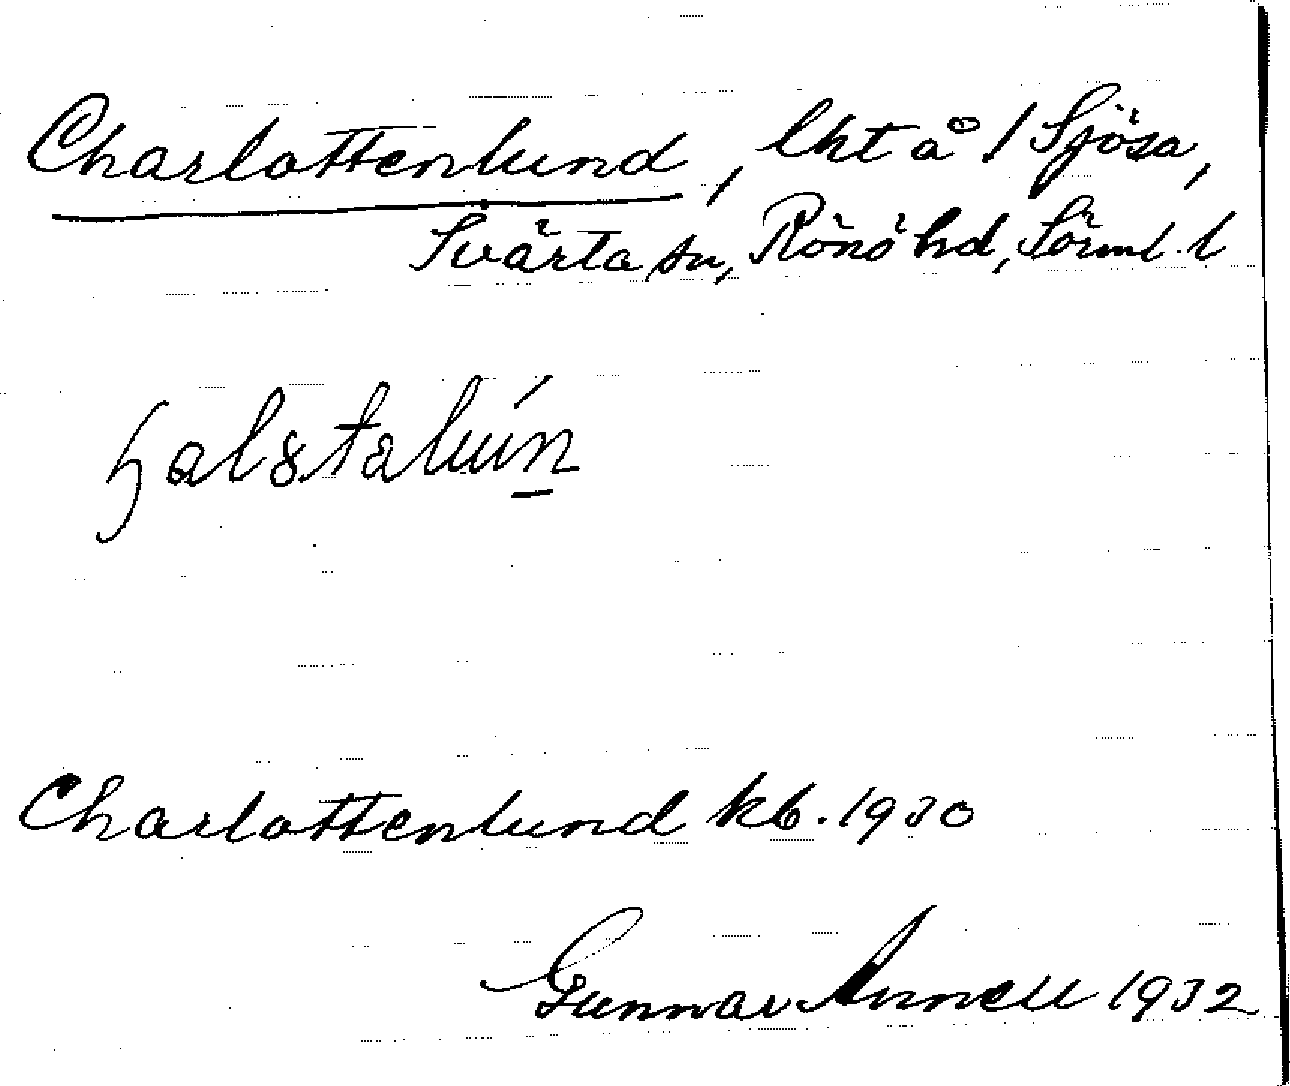 Charlottenlund, lht å 1 Sjösa,
Svärta sn, Rönö hd, Sörml. l
Charlottenlund kb. 1930
Gunnar Annell 1932